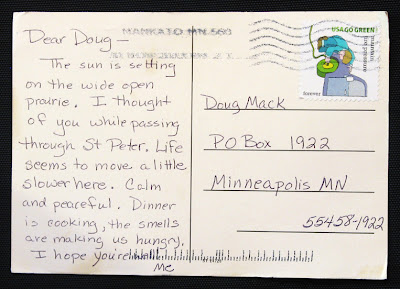 MANKATO MN 560
Dear Doug—
The sun is setting
on the wide open
prairie. I thought
of you while passing
through St Peter. Life
seems to move a little
slower here. Calm
and peaceful. Dinner
is cooking, the smells
are making us hungry.
I hope you're well!
Me
USA GO GREEN
forever
Doug Mack
PO Box 1922
Minneapolis MN
55458-1922